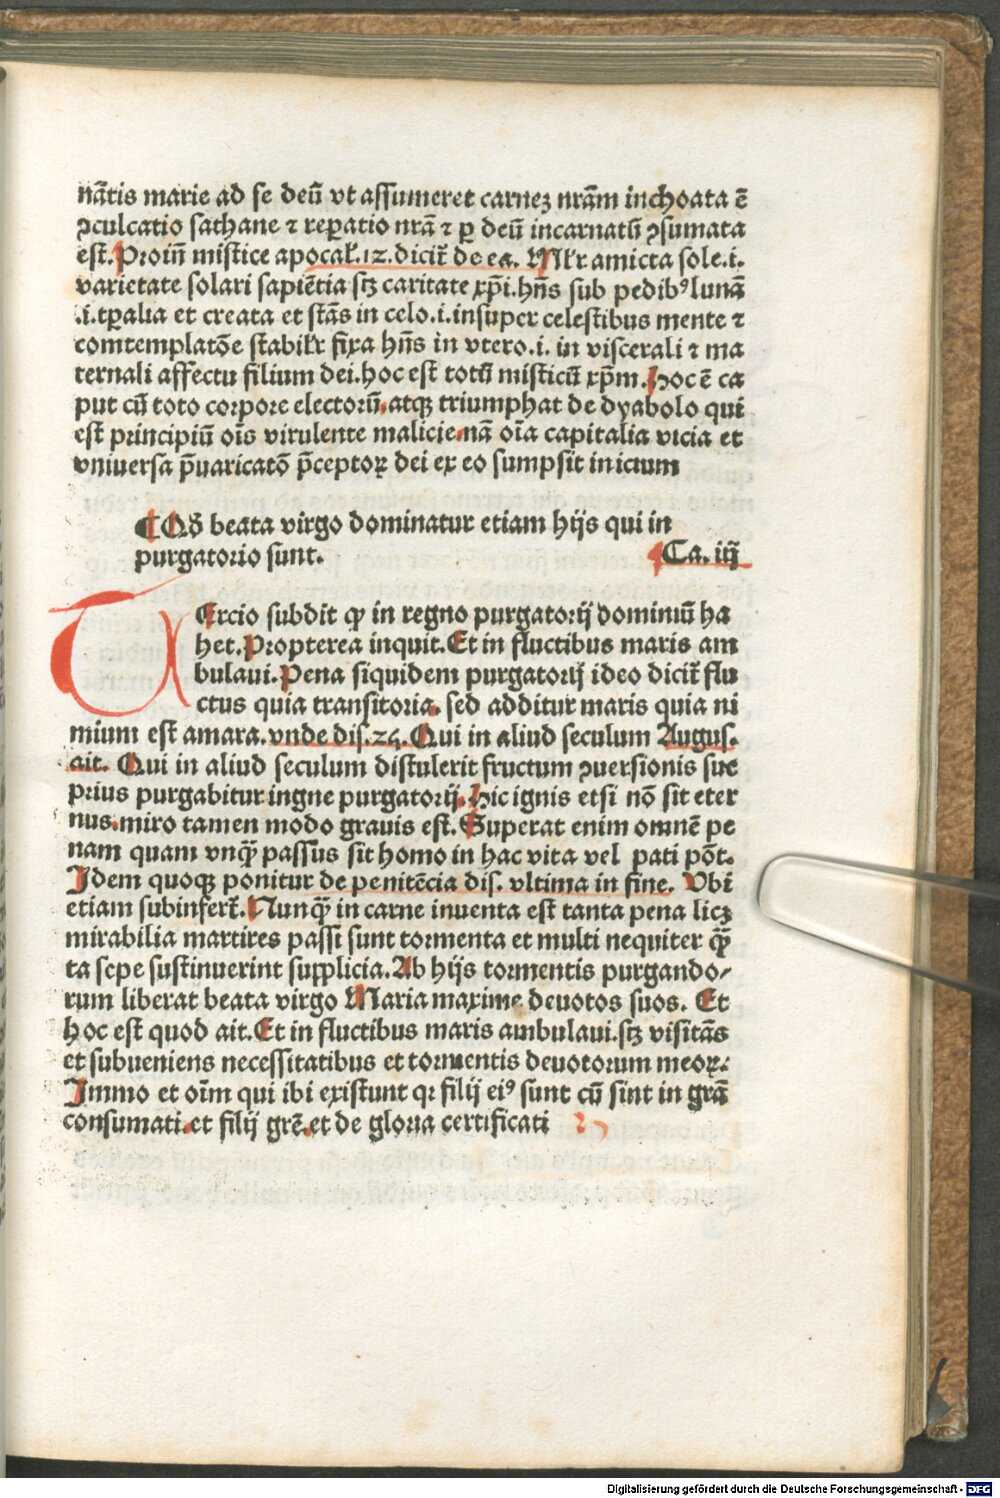 nãtis marie ad se deũ vt assumeret carneꝫ nrãm inchoata ẽ
ꝯculcatio sathane ⁊ reꝑatio nrã ⁊ ꝑ deũ incarnatũ ꝯsumata
est. Proiñ mistice apocal̃. 12. dicit̃ de ea. Ml̃r amicta sole .i.
varietate solari sapiẽtia sꝫ caritate xp̃i. hñs sub pedibꝰ lunã
.i. tꝑalia et creata et stãs in celo .i. insuper celestibus mente ⁊
comtemplatõe stabil̃r fixa hñs in vtero .i. in viscerali ⁊ ma
ternali affectu filium dei. hoc est totũ misticũ xp̃m. Hoc ẽ ca
put cũ toto corpore electorũ. atqꝫ triumphat de dyabolo qui
est principiũ oĩs virulente malicie. nã oĩa capitalia vicia et
vniuersa p̃uaricatõ p̃ceptoꝝ dei ex eo sumpsit inicium
¶ Qđ beata virgo dominatur etiam hijs qui in
purgatorio sunt. Ca. iij
TErcio subdit ꝙ in regno purgatorij dominiũ ha
bet. Propterea inquit. Et in fluctibus maris am
bulaui. Pena siquidem purgatorij ideo dicit̃ flu
ctus quia transitoria. sed additur maris quia ni
mium est amara. vnde dis. 25. Qui in aliud seculum Augus.
ait. Qui in aliud seculum distulerit fructum ꝯuersionis sue
prius purgabitur ingne purgatorij. Hic ignis etsi nõ sit eter
nus. miro tamen modo grauis est. Superat enim omnẽ pe
nam quam vnqꝫ̃ passus sit homo in hac vita vel pati põt.
Idem quoqꝫ ponitur de penitẽcia dis. vltima in fine. Vbi
etiam subinfert̃. Nunqꝫ̃ in carne inuenta est tanta pena licꝫ
mirabilia martires passi sunt tormenta et multi nequiter qꝫ̃
ta sepe sustinuerint supplicia. Ab hijs tormentis purgando/
rum liberat beata virgo Maria maxime deuotos suos. Et
hoc est quod ait. Et in fluctibus maris ambulaui. sꝫ visitãs
et subueniens necessitatibus et tormentis deuotorum meoꝝ.
Immo et oĩm qui ibi existunt qꝛ filij eiꝰ sunt cũ sint in grã
consumati. et filij grẽ. et de gloria certificati
Digitalisierung gefördert durch die Deutsche Forschungsgemeinschaft - DFG